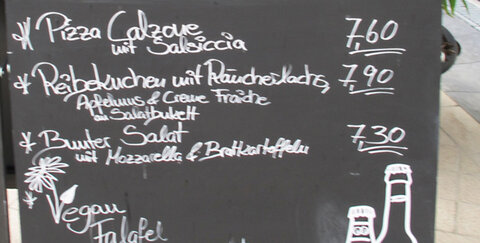 * Pizza Calzone 7,60
mit Salsiccia
* Reibekuchen mit Räucherlachs, 7,90
Apfelmus & Creme Fraîche
an Salatbukett
* Bunter Salat 7,30
mit Mozzarella & Bratkartoffeln
Vegan
Falafel